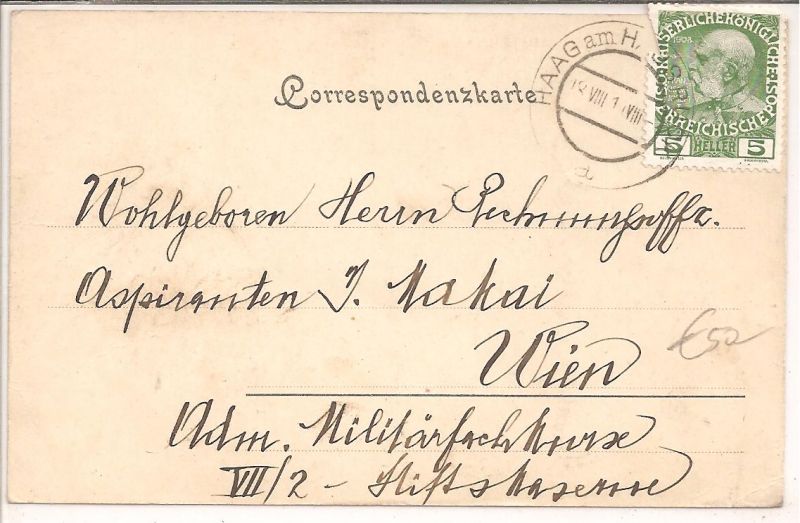 Correspondenzkarte
HAAG am HA
18 VIII 1
VIII
a
KAISERLICHE KÖNIGLICHE
1908
ÖSTERREICHISCHE POST
5 HELLER 5
Wohlgeboren Herrn Rechnungsoffz.
Aspiranten J. Makai
Wien
€50
Adm. Militärfachkurse
VII/2 – Stiftskaserne